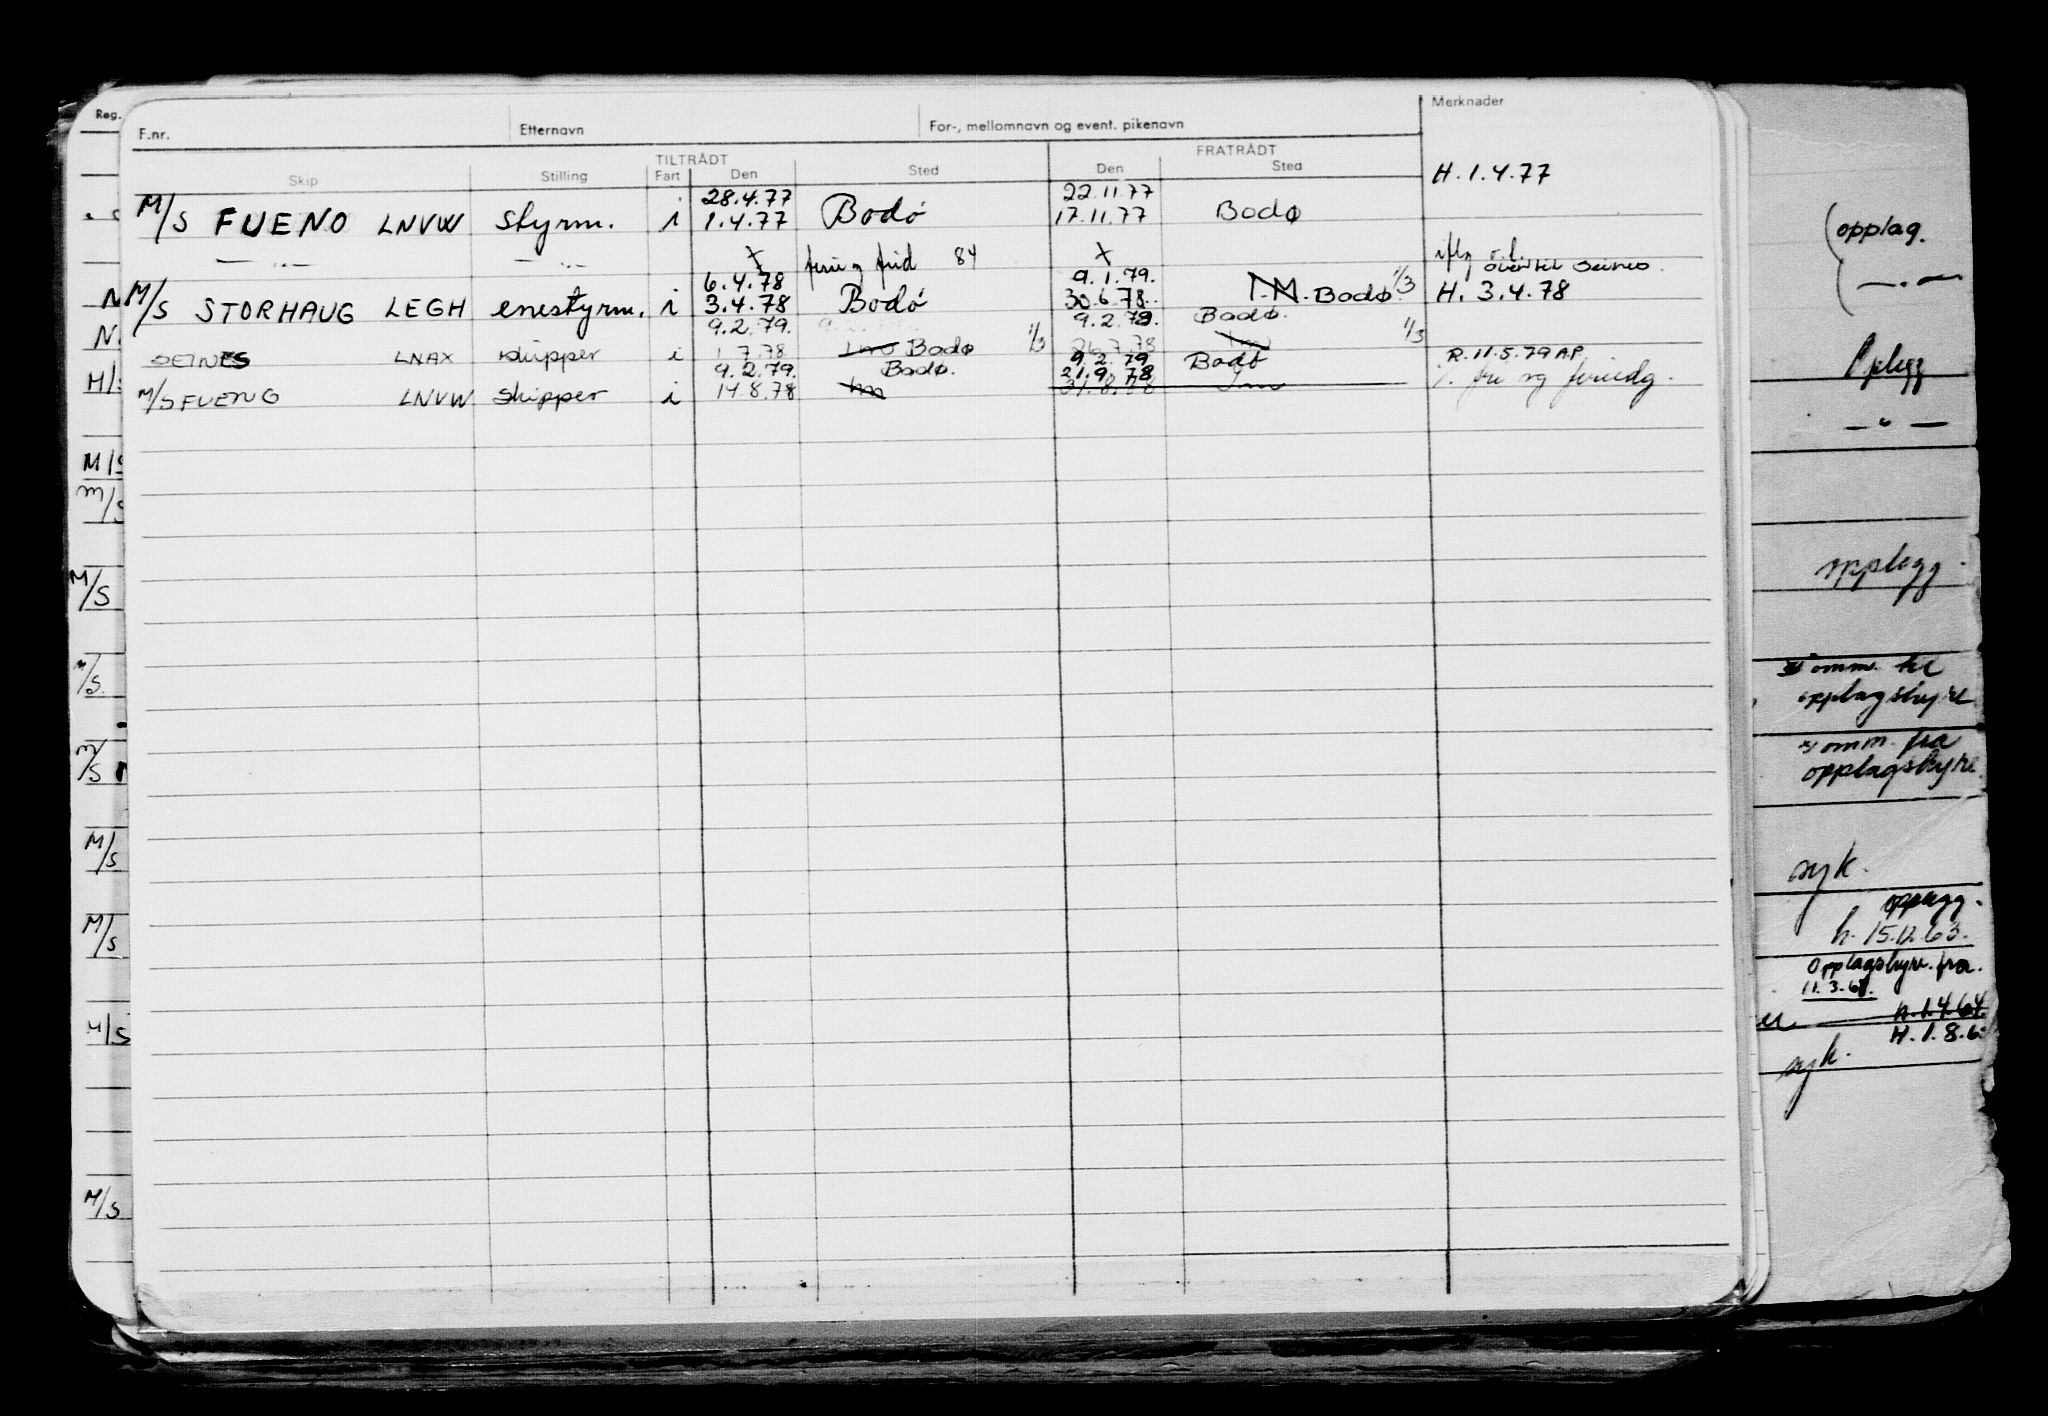 Reg.
F.nr. Etternavn For-, mellomnavn og event. pikenavn Merknader
TILTRÅDT FRATRÅDT
Skip Stilling Fart Den Sted Den Sted
H. 1.4.77
28.4.77 22.11.77
M/S FUENO LNVW styrm. i 1.4.77 Bodø 17.11.77 Bodø
— " — — " — x ferie og frid 84 x
6.4.78 9.1.79. over til Seines
M/S STORHAUG LEGH enestyrm. i 3.4.78 Bodø 30.6.78. Bodø 1/3 H. 3.4.78
9.2.79. 9.2.79. Bodø.
SEINES LNAX skipper i 1.7.78 Bodø 1/3 26.7.78 1/3
9.2.79. Bodø. 9.2.79 Bodø R. 11.5.79 AP
21.9.78
M/S FUENO LNVW skipper i 14.8.78 31.8.78 Im
M/S
m/S
M/S
M/S.
M/S
M/S
M/S
M/S
M/S
opplag.
— " —
Opplegg
— " —
opplegg.
omm. til
opplagshyre
omm. fra
opplagshyre
syk.
opplegg.
h. 15.12.63.
Opplagshyre. fra.
h. 1.4.64.
H. 1.8.6
syk.